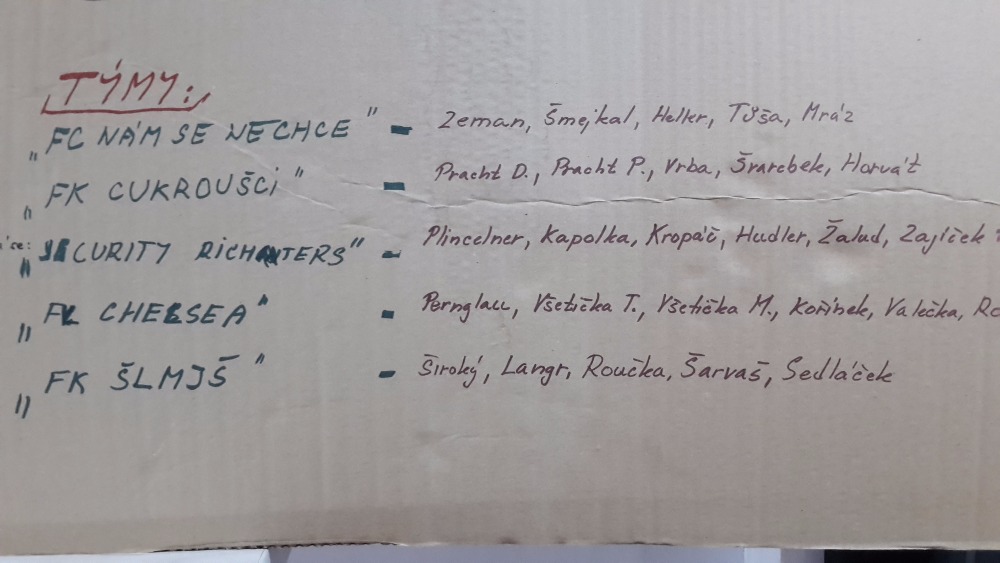 TÝMY:
„FC NÁM SE NECHCE" - Zeman, Šmejkal, Heller, Tůša, Mráz
„FK CUKROUŠCI" - Pracht D., Pracht P., Vrba, Švarcbek, Horvát
„SECURITY RICHTERS" - Plincelner, Kapolka, Kropáč, Hudler, Žalud, Zajíček
„FK CHELSEA" - Pernglau, Všetička T., Všetička M., Kořínek, Valečka,
„FK ŠLMJŠ" - Široký, Langr, Roučka, Šarvaš, Sedláček